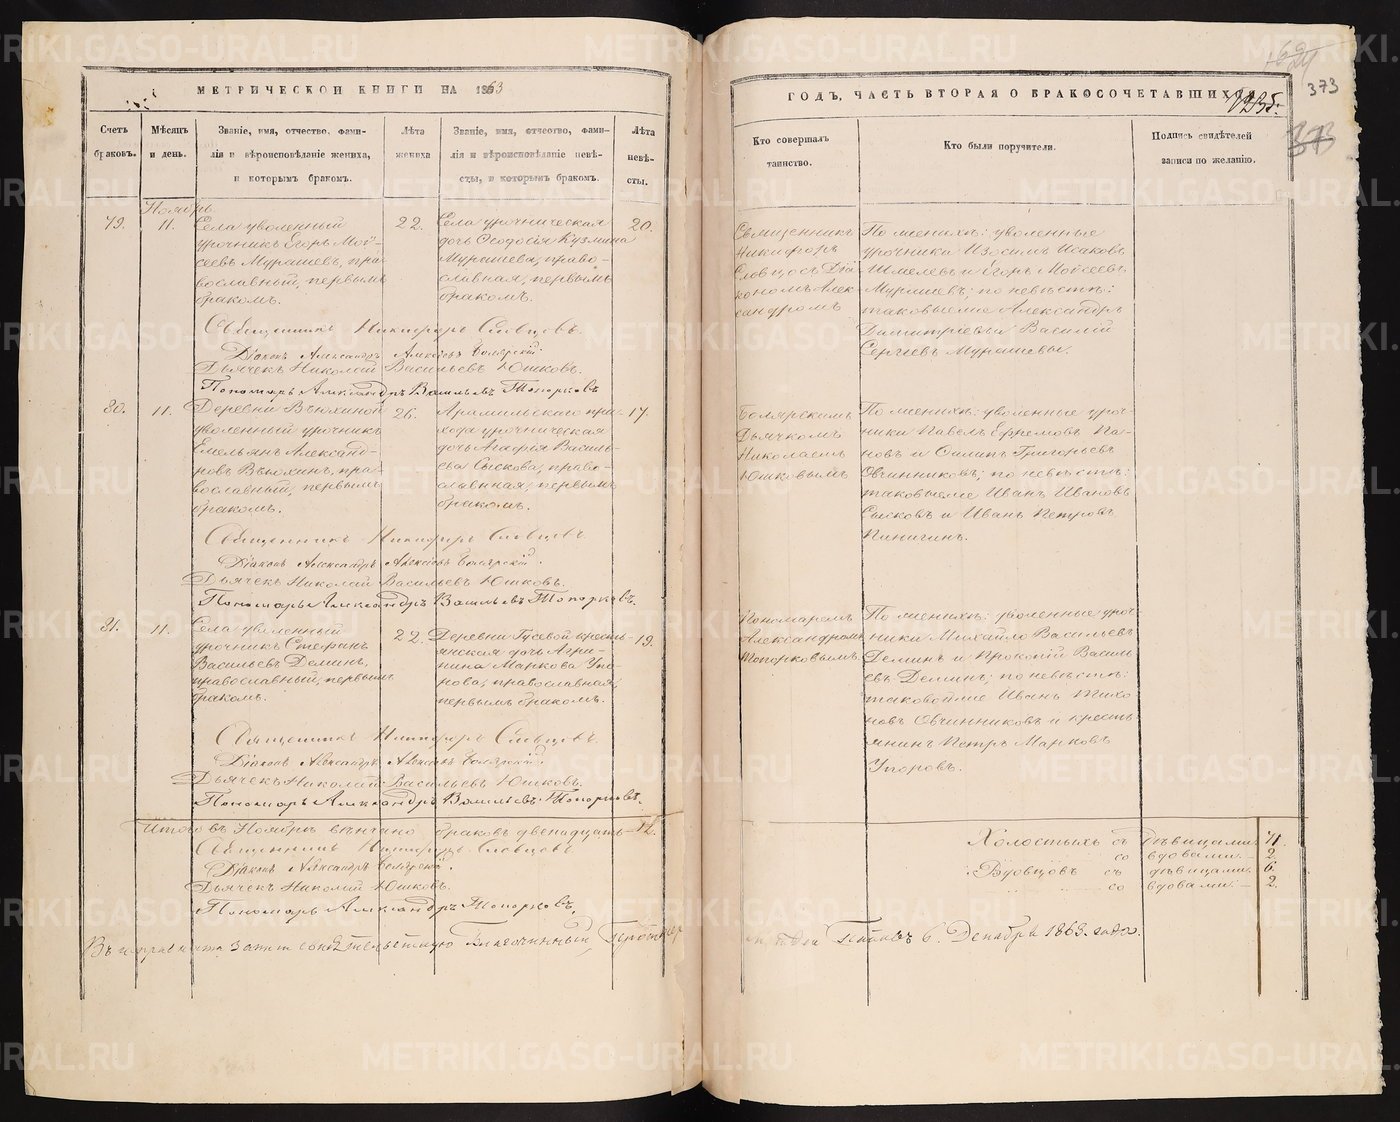 МЕТРИЧЕСКОЙ КНИГИ НА 1863
Счетъ браковъ.
Мѣсяцъ и день.
Званіе, имя, отчество, фами-
лія и вѣроисповѣданіе жениха,
и которымъ бракомъ.
Лѣта жениха
Званіе, имя, отчество, фами-
лія и вѣроисповѣданіе невѣ-
сты, и которымъ бракомъ.
Лѣта невѣ-
сты.
Ноябрь
79. 11.
Села уволенный
урочникъ Егоръ Мои-
сеевъ Мурашевъ, пра-
вославный, первымъ
бракомъ.
22.
Села урочническая
дочь Ѳеодосія Кузмина
Мурашева, право-
славная, первымъ
бракомъ.
20.
Священникъ Никифоръ Словцовъ.
Діаконъ Александръ Алексѣевъ Боярскій.
Дьячекъ Николай Васильевъ Юшковъ.
Пономарь Александръ Васильевъ Топорковъ
80. 11.
Деревни Вьюхиной
уволенный урочникъ
Емельянъ Александ-
ровъ Вьюхинъ, пра-
вославный, первымъ
бракомъ.
26.
Арамильскаго при-
хода урочническая
дочь Агафія Василь-
ева Сыскова, право-
славная, первымъ
бракомъ.
17.
Священникъ Никифоръ Словцовъ.
Діаконъ Александръ Алексѣевъ Боярскій.
Дьячекъ Николай Васильевъ Юшковъ.
Пономарь Александръ Васильевъ Топорковъ.
81. 11.
Села уволенный
урочникъ Стефанъ
Васильевъ Деминъ,
православный, первымъ
бракомъ.
22.
Деревни Гусевой кресть-
янская дочь Агри-
пина Маркова Упо-
рова, православная,
первымъ бракомъ.
19.
Священникъ Никифоръ Словцовъ.
Діаконъ Александръ Алексѣевъ Боярскій.
Дьячекъ Николай Васильевъ Юшковъ.
Пономарь Александръ Васильевъ Топорковъ.
Итого въ Ноябрѣ вѣнчано браковъ двенадцать 12.
Священникъ Никифоръ Словцовъ
Діаконъ Александръ Боярскій.
Дьячекъ Николай Юшковъ.
Пономарь Александръ Топорковъ.
ГОДЪ, ЧАСТЬ ВТОРАЯ О БРАКОСОЧЕТАВШИХСЯ
373
373
Кто совершалъ
таинство.
Кто были поручители.
Подпись свидѣтелей
записи по желанію.
Священникъ
Никифоръ
Словцовъ съ Діа
кономъ Алек-
сандромъ
По женихѣ: уволенные
урочники Изосимъ Исаковъ
Шмелевъ и Егоръ Моисеевъ
Мурашевъ; по невѣстѣ:
таковыеже Александръ
Дмитріевъ и Василій
Сергѣевъ Мурашевы.
Боярскимъ
Дьячкомъ
Николаемъ
Юшковымъ
По женихѣ: уволенные уроч-
ники Павелъ Ефремовъ Па-
новъ и Филипъ Григорьевъ
Овчинниковъ; по невѣстѣ:
таковыеже Иванъ Ивановъ
Сысковъ и Иванъ Петровъ
Пинигинъ.
Пономаремъ
Александромъ
Топорковымъ.
По женихѣ: уволенные уроч-
ники Михайло Васильевъ
Деминъ и Прокопій Василь
евъ Деминъ; по невѣстѣ:
таковойже Иванъ Тихо
новъ Овчинниковъ и кресть-
янинъ Петръ Марковъ
Упоровъ.
Холостыхъ съ дѣвицами 71.
со вдовами 2.
Вдовцовъ съ дѣвицами 6.
со вдовами 2.
6. Декабря 1863. года.
METRIKI.GASO-URAL.RU